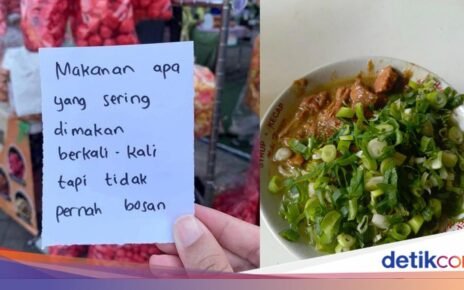 Makanan apa
yang sering
dimakan
berkali-kali
tapi tidak
pernah bosan
SYRUP
KECAP
detikcom